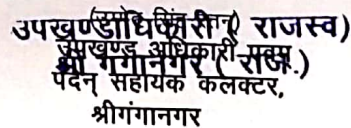 (उम्मेद सिंह रतनू)
उपखण्डाधिकारी ( राजस्व)
उपखण्ड अधिकारी एवम्
श्री गंगानगर ( राज.)
पदेन् सहायक कलक्टर,
श्रीगंगानगर